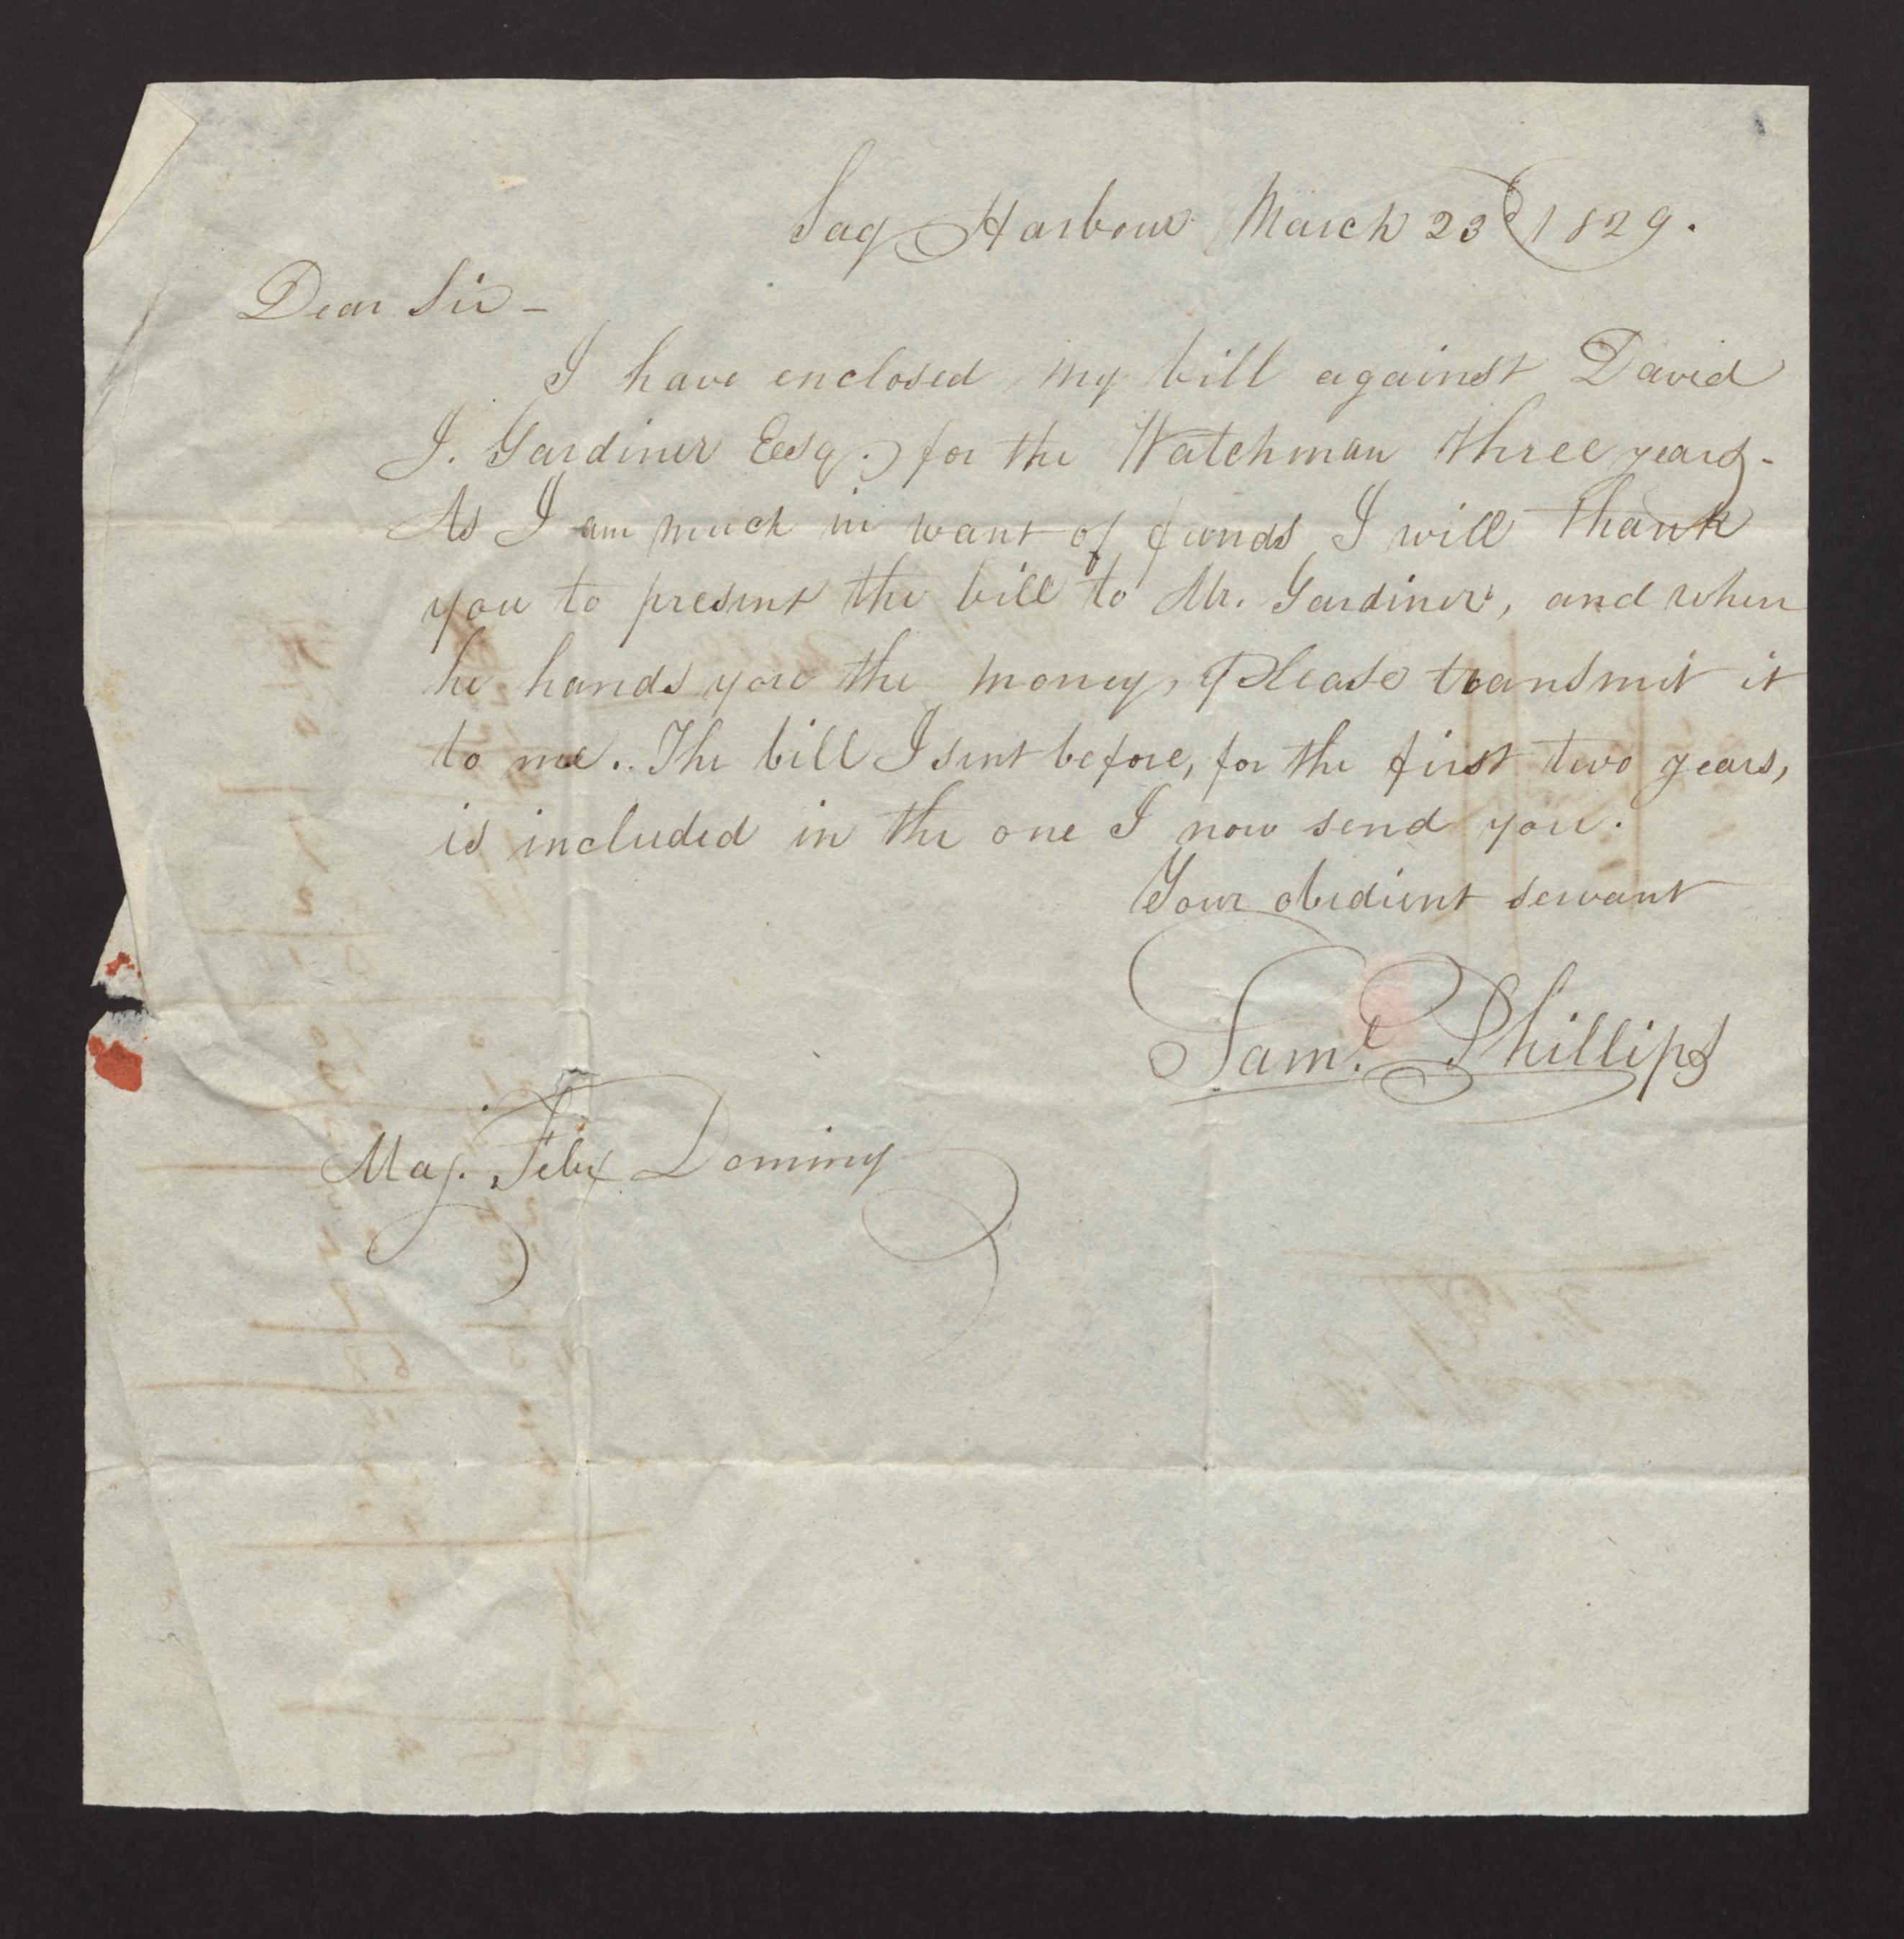 Sag Harbour March 23d 1829.
Dear Sir -
I have enclosed my bill against David
J. Gardiner Esq. for the Watchman three years -
As I am much in want of funds I will thank
you to present the bill to Mr. Gardiner, and when
he hands you the money, please transmit it
to me.. The bill I sent before, for the first two years,
is included in the one I now send you.
Your obedient servant
Saml. Phillips
Maj. Felix Dominy